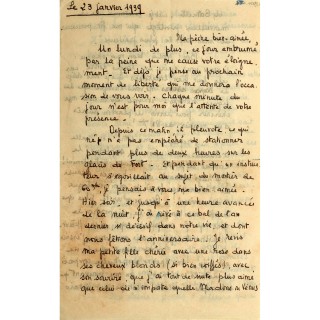 Le 23 janvier 1939
Ma petite bien-aimée,
Un lundi de plus, ce jour embrumé
par la peine que me cause votre éloigne
ment. Et déjà je pense au prochain
moment de liberté qui me donnera l'occa
sion de vous voir. Chaque minute du
jour n'est pour moi que l'attente de votre
présence.
Depuis ce matin il pleuvote, ce qui
n'a pas empêché de stationner
pendant plus de deux heures sur les
glacis du Fort. Et pendant qu'un instruc
teur s'égosillait au sujet du mortier de
je pensais à vous ma bien aimée.
Hier soir, et jusqu'à une heure avancée
de la nuit, j'ai rêvé à ce bal de l'an
dernier si décisif dans notre vie, et dont
nous fêtions l'anniversaire. Je revis
ma petite fille chérie avec une rose dans
ses cheveux blonds (si bien coiffés), avec
son sourire, que j'ai tant de mate plus aimé
que celui de n'importe quelle Madone de